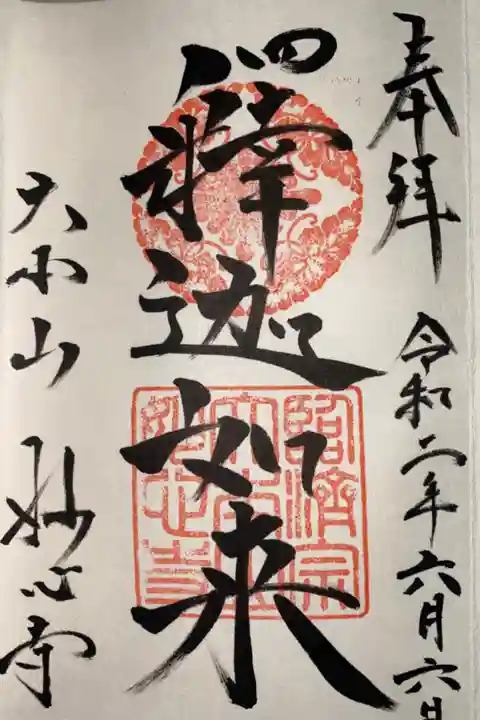 奉拝
令和二年六月六日
釋迦如来
臨済宗
大小山
妙心寺
大小山 妙心寺